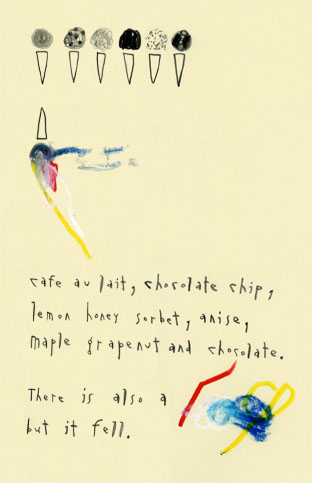 cafe au lait, chocolate chip,
lemon honey sorbet, anise,
maple grapenut and chocolate.
There is also a
but it fell.